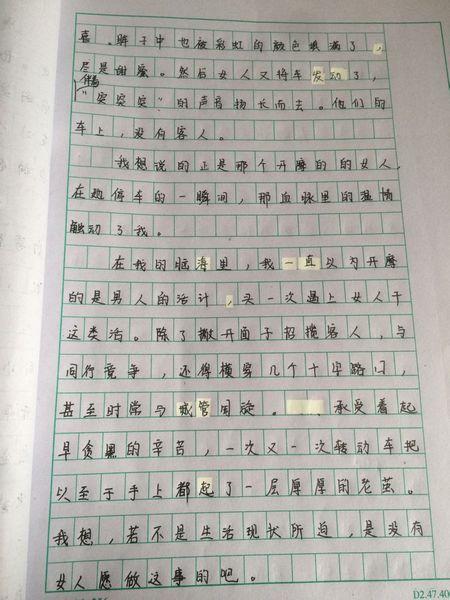 喜。眸子中也被彩虹的颜色填满了,
尽是甜蜜。然后女人又将车发动了,
伴着
“突突突”的声音扬长而去。他们的
车上,没有客人。
我想说的正是那个开摩的的女人,
在她停车的一瞬间,那血脉里的温情
触动了我。
在我的脑海里,我一直以为开摩
的是男人的活计,头一次遇上女人干
这类活。除了撇开面子招揽客人,与
同行竞争,还得横穿几个十字路口,
甚至时常与城管周旋。承受着起
早贪黑的辛苦,一次又一次转动车把
以至于手上都起了一层厚厚的老茧。
我想,若不是生活现状所迫,是没有
女人愿做这事的吧。
D2.47.40